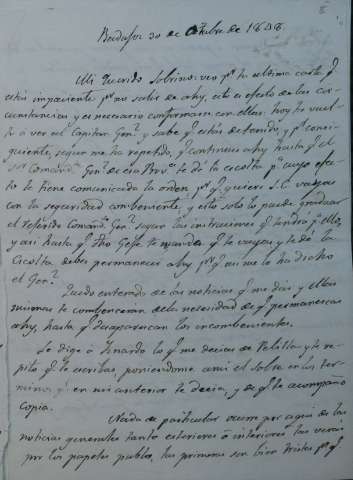 Badajoz 30 de Octubre de 1838
8
Mi Querido Sobrino: veo pr. tu ultima carta q.
estás impaciente pr. no salir de ahy, esto es efecto de las cir-
cunstancias y es necesario conformarse con ellas: hoy he vuel-
to a ver al Capitan Genl. y sabe q. estás detenido, y pr. consi-
guiente, segun me ha repetido, q. continues ahy hasta q. el
Sor. Comande. Genl. de esa Prova. te dé la escolta pa. cuyo efec-
to le tiene comunicada la orden, pr. q. quiere S.E. vayas
con la seguridad combeniente, y esto solo lo puede graduar
el referido Comande. Genl. segun las instrucciones q. tendrá pa. ello,
y asi hasta q. dho Gefe te mande q. te vayas y te dé la
escolta debes permanecer ahy pr. q. asi me lo ha dicho
el Genl.
Quedo enterado de las noticias q. me das y ellas
mismas te combencerán de la necesidad de q. permanezcas
ahy, hasta q. desaparezcan los incombenientes.
Le dige á lo q. me decias de y te re-
pito q. te escribas poniendome á mi el sobre en los ter-
minos q. en mi anterior te decia, y de q. te acompaño
copia.
Nada de particular ocurre por aqui de las
noticias generales tanto esteriores ó interiores las verás
por los papeles publicos, las primeras son bien tristes pr. q.